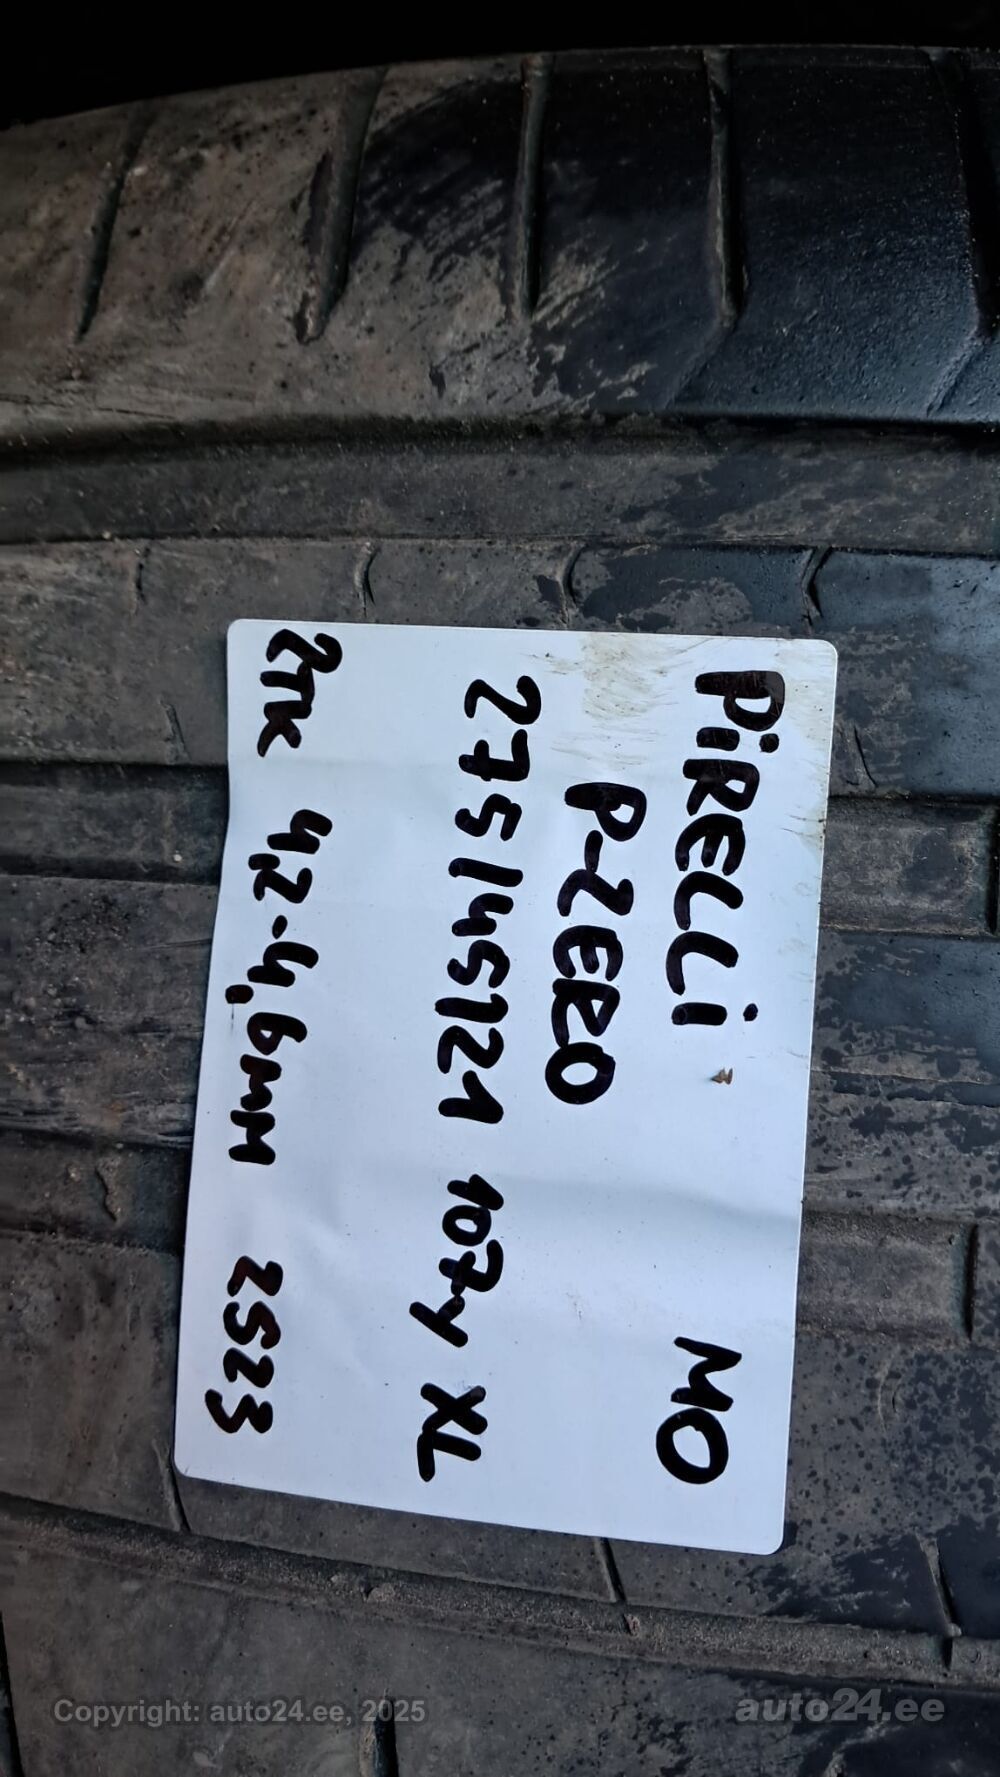 PiRELLi MO
P-ZERO
275/45/21 107y XL
2TK 4,2-4,6мм 2523
Copyright: auto24.ee, 2025
auto24.ee